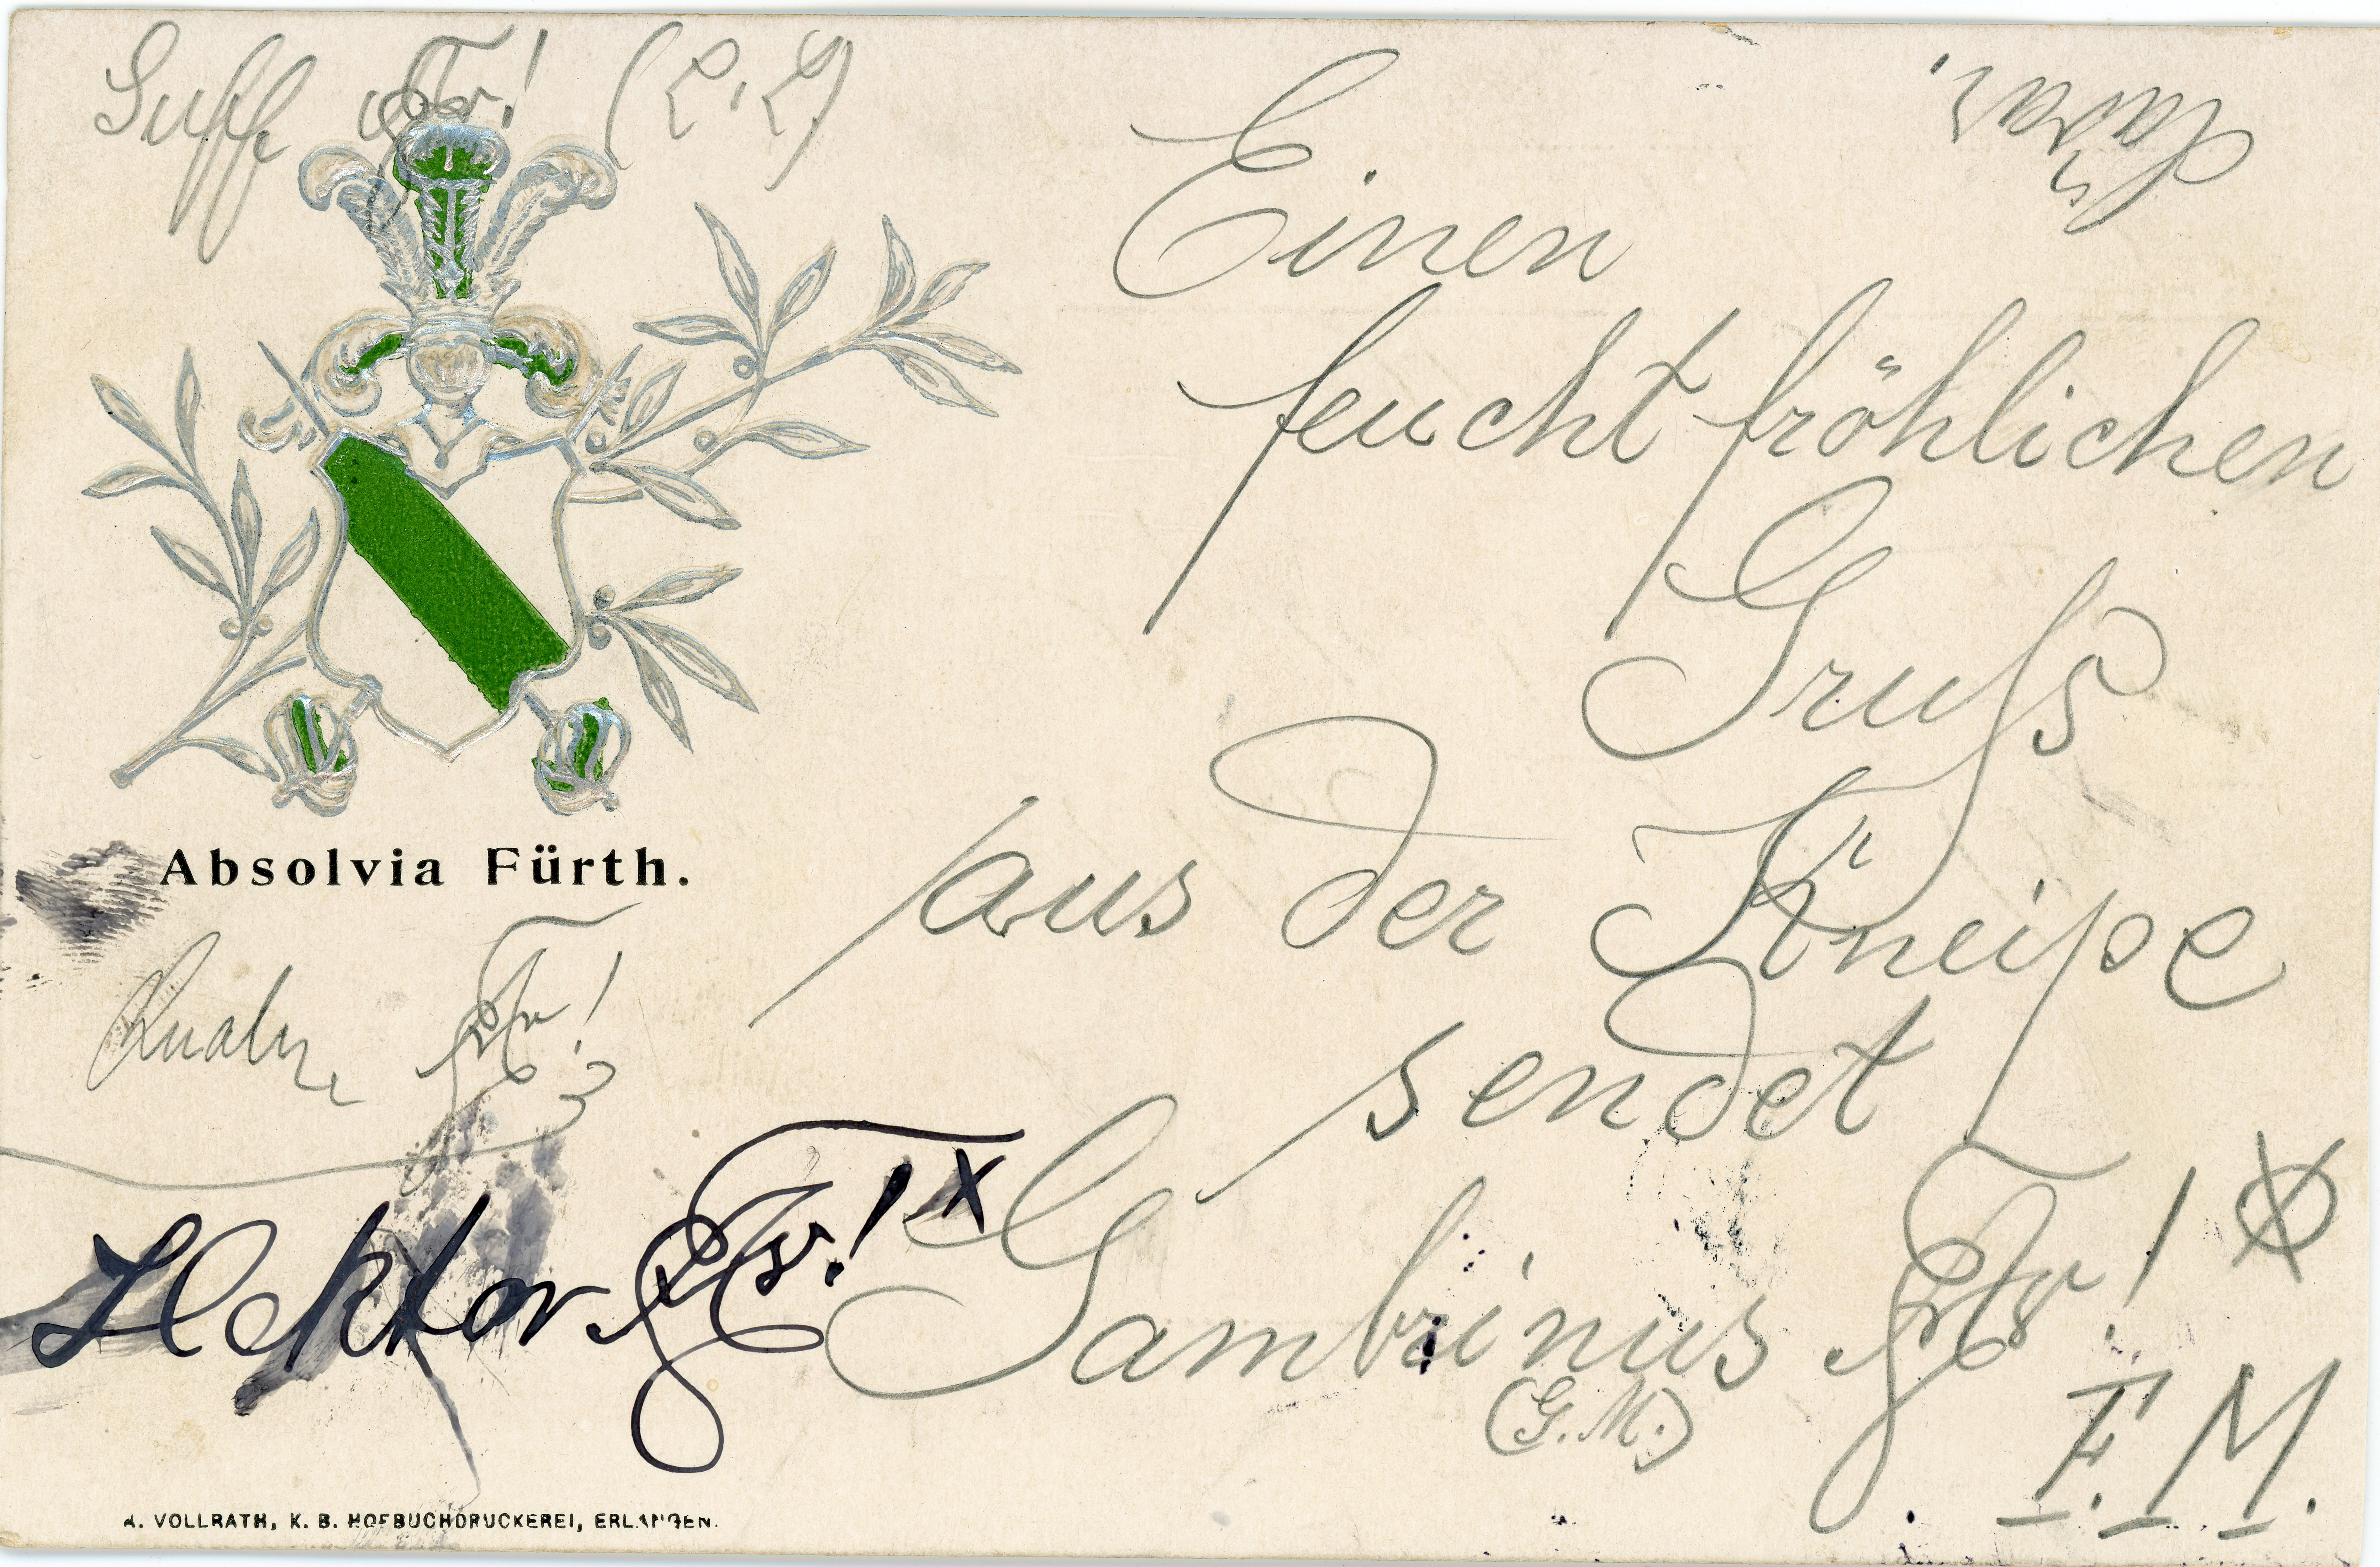 Suff
Einen
feucht fröhlichen
Gruß
aus der Kneipe
sendet
Gambrinus
(G. M.)
F. M.
Absolvia Fürth.
Hektor
A. VOLLRATH, K. B. HOFBUCHDRUCKEREI, ERLANGEN.